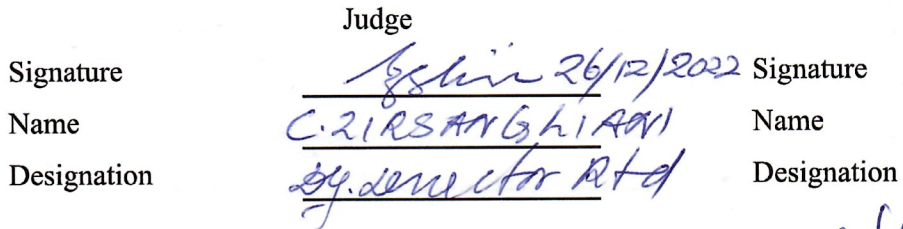 Judge
Signature 26/12/2022 Signature
Name C. ZIRSANGLIANI Name
Designation Dy. Director Rtd Designation